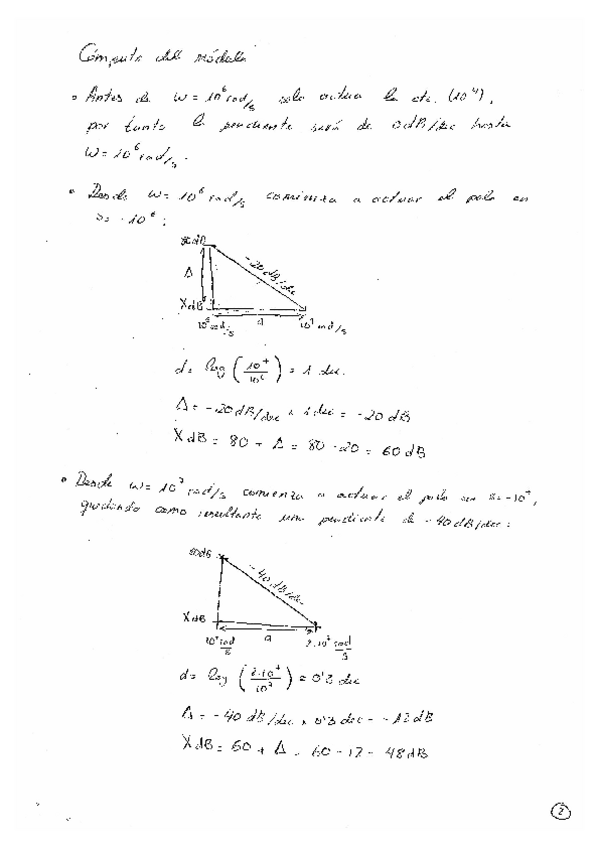 Cómputo del módulo
• Antes de ω = 10⁶ rad/s solo actúa la cte. (10⁴),
por tanto la pendiente será de 0dB/dec hasta
ω = 10⁶ rad/s.
• Desde ω = 10⁶ rad/s comienza a actuar el polo en
s = -10⁶ :
80dB
-20 dB/dec
Δ
X dB
10⁶ rad/s d 10⁷ rad/s
d = log (10⁷/10⁶) = 1 dec.
Δ = -20 dB/dec × 1 dec = -20 dB
X dB = 80 + Δ = 80 - 20 = 60 dB
• Desde ω = 10⁷ rad/s comienza a actuar el polo en s = -10⁷,
quedando como resultante una pendiente de -40 dB/dec :
60dB
-40 dB/dec
X dB
10⁷ rad/s d 2·10⁷ rad/s
d = log (2·10⁷/10⁷) = 0'3 dec
Δ = -40 dB/dec × 0'3 dec = -12 dB
X dB = 60 + Δ = 60 - 12 = 48 dB
2